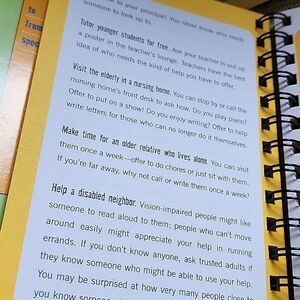 to your principal! You never know who needs
someone to look up to.
Tutor younger students for free. Ask your teacher to put up
a poster in the teacher's lounge. Teachers have the best
idea of who needs the kind of help you have to offer.
Visit the elderly in a nursing home. You can stop by or call the
nursing home's front desk to ask how. Do you play piano?
Offer to put on a show! Do you enjoy writing? Offer to help
write letters for those who can no longer do it themselves.
Make time for an older relative who lives alone. You can visit
them once a week—offer to do chores or just sit with them.
If you're far away, why not call or write them once a week?
Help a disabled neighbor. Vision-impaired people might like
someone to read aloud to them; people who can't move
around easily might appreciate your help in running
errands. If you don't know anyone, ask trusted adults if
they know someone who might be able to use your help.
You may be surprised at how very many people close to
you know someone
to
from
spec